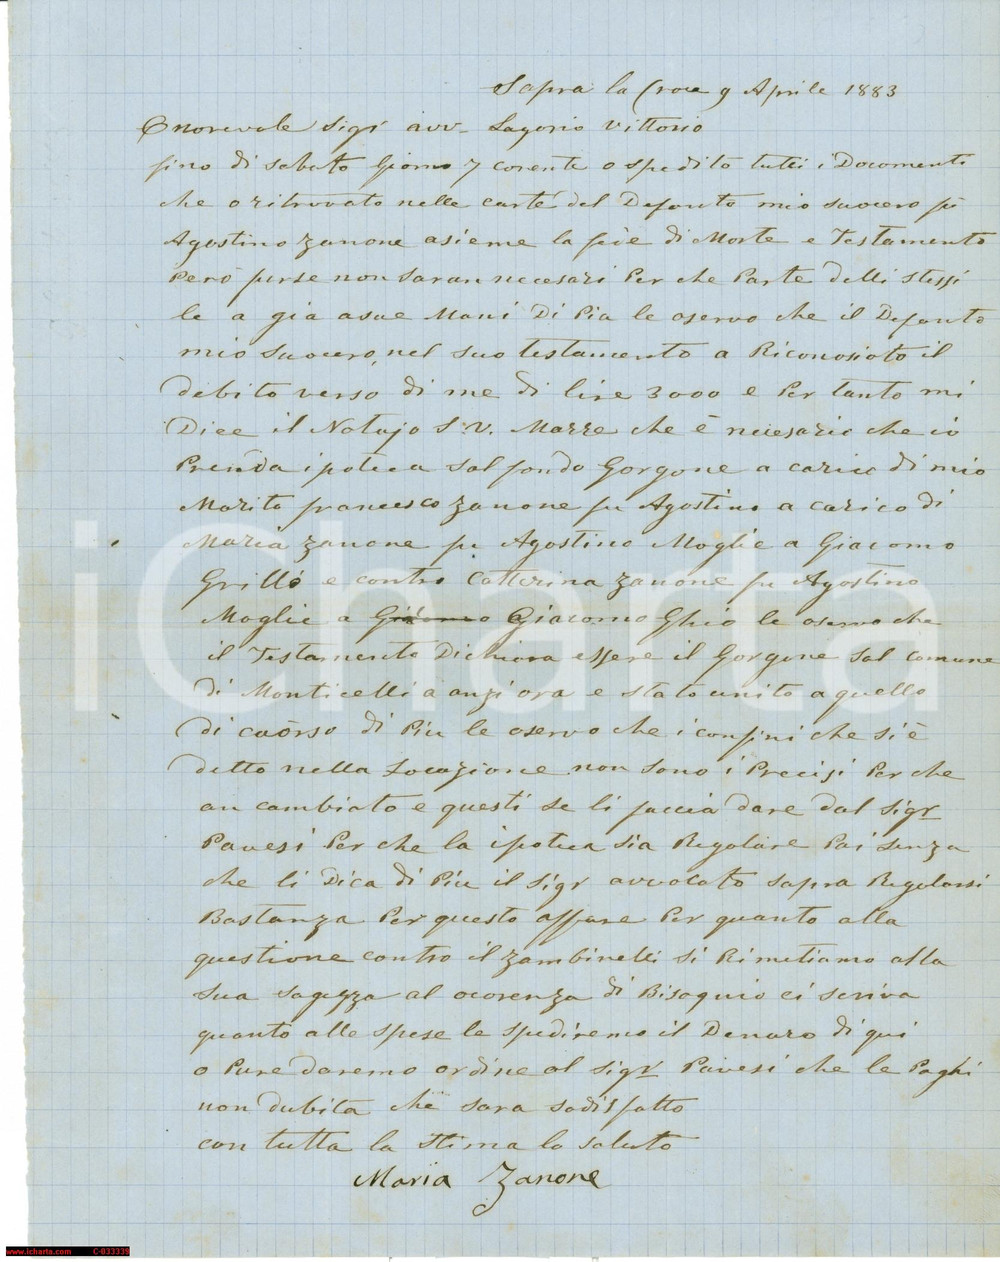 Sopra la Croce 9 Aprile 1883
Onorevole Sigr avv. Lagorio Vittorio
fino di sabato Giorno 7 corente o spedito tutti i Docomenti
che o ritrovato nelle carte del Defonto mio suocero fu
Agostino Zanone asieme la fede di Morte e Testamento
Però forse non saran necesari Per che Parte delli stessi
le a già asue Mani Di Piu le oservo che il Defonto
mio suocero, nel suo testamento a Riconosioto il
debito verso di me di lire 3000 e Per tanto mi
Dice il Notajo S.V. Marre che è necesario che io
Prenda ipoteca sal fondo Gorgone a carico di mio
Marito francesco Zanone fu Agostino a carico di
Maria Zanone fu Agostino Moglie a Giacomo
Grillo e contro Catterina Zanone fu Agostino
Moglie a Giacomo Giacomo Ghio le oservo che
il Testamento Dichiara essere il Gorgone sal comune
di Monticelli a anzi ora e stato unito a quello
di caorso di Piu le oservo che i confini che si è
detto nella Locazione non sono i Precisi Per che
an cambiato e questi se li faccia dare dal Sigr
Pavesi Per che la ipoteca sia Regolare Poi senza
che li Dica di Piu il Sigr avvocato sapra Regolarsi
Bastanza Per questo affare Per quanto alla
questione contro il Zambinelli si Rimetiamo alla
sua sagezza al ocorenza di Bisognio ci scriva
quanto alle spese le spediremo il Denaro di qui
o Pure daremo ordine al Sigr Pavesi che le Paghi
non dubita che sara sodisfatto
con tutta la stima lo saluto
Maria Zanone
iCharta
www.icharta.com C-033339